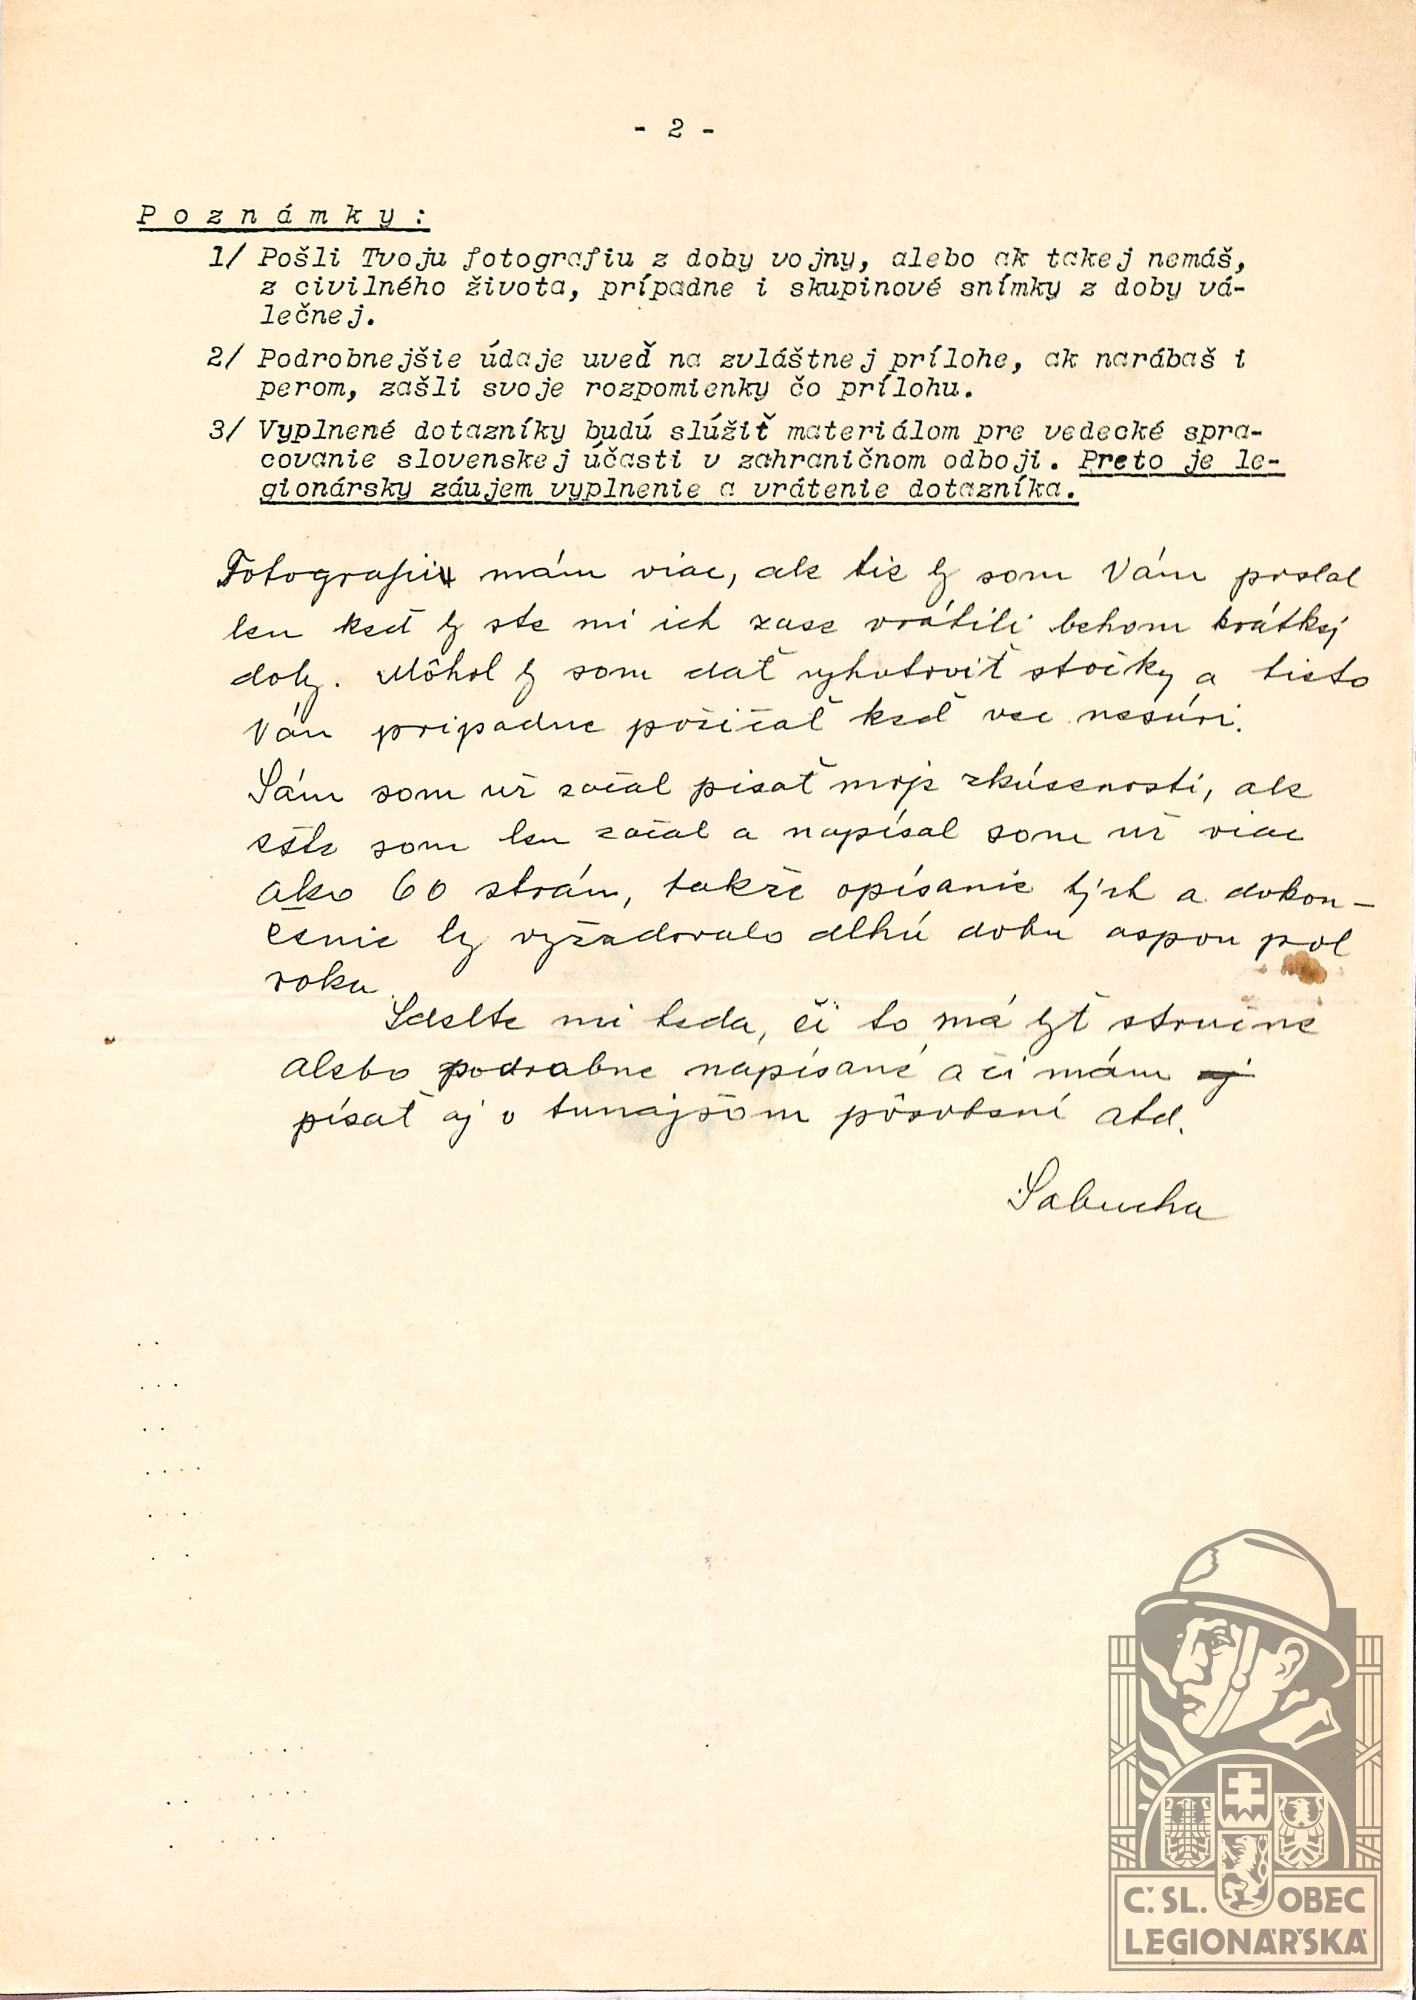 - 2 -
P o z n á m k y :
1/ Pošli Tvoju fotografiu z doby vojny, alebo ak takej nemáš,
z civilného života, prípadne i skupinové snímky z doby vá-
lečnej.
2/ Podrobnejšie údaje uveď na zvláštnej prílohe, ak narábaš i
perom, zašli svoje rozpomienky čo prílohu.
3/ Vyplnené dotazníky budú slúžiť materiálom pre vedecké spra-
covanie slovenskej účasti v zahraničnom odboji. Preto je le-
gionársky záujem vyplnenie a vrátenie dotazníka.
Fotografií mám viac, ale tie by som Vám poslal
len keď by ste mi ich zase vrátili behom krátkej
doby. Môhol by som dať vyhotoviť stočky a tieto
Vám prípadne požičať keď vec nesúri.
Sám som už začal písať moje zkúsenosti, ale
ešte som len začal a napísal som už viac
ako 60 strán, takže opísanie tých a dokon-
čenie by vyžadovalo dlhú dobu aspon pol
roka.
Sdelte mi teda, či to má byť stručne
alebo podrobne napísané a či mám
písať aj o tunajšom pôsobení atd.
Sabucha
Č. SL. OBEC
LEGIONÁŘSKÁ